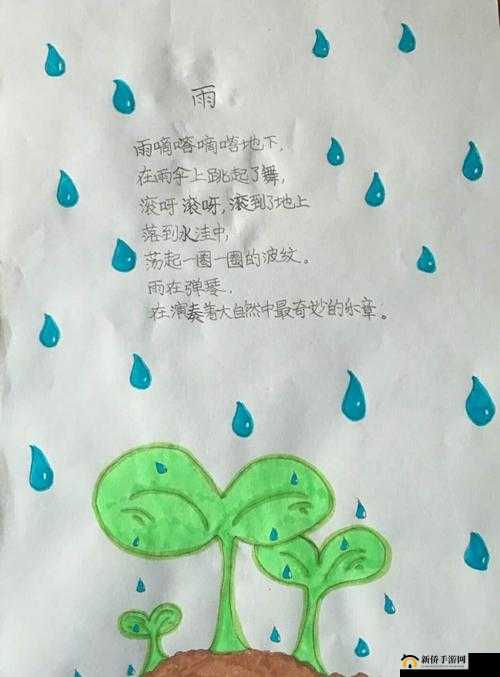 雨
雨嘀嗒嘀嗒地下,
在雨伞上跳起了舞,
滚呀 滚呀,滚到了地上
落到水洼中,
荡起一圈一圈的波纹。
雨在弹琴,
在演奏着大自然中最奇妙的乐章。
新侨手游网